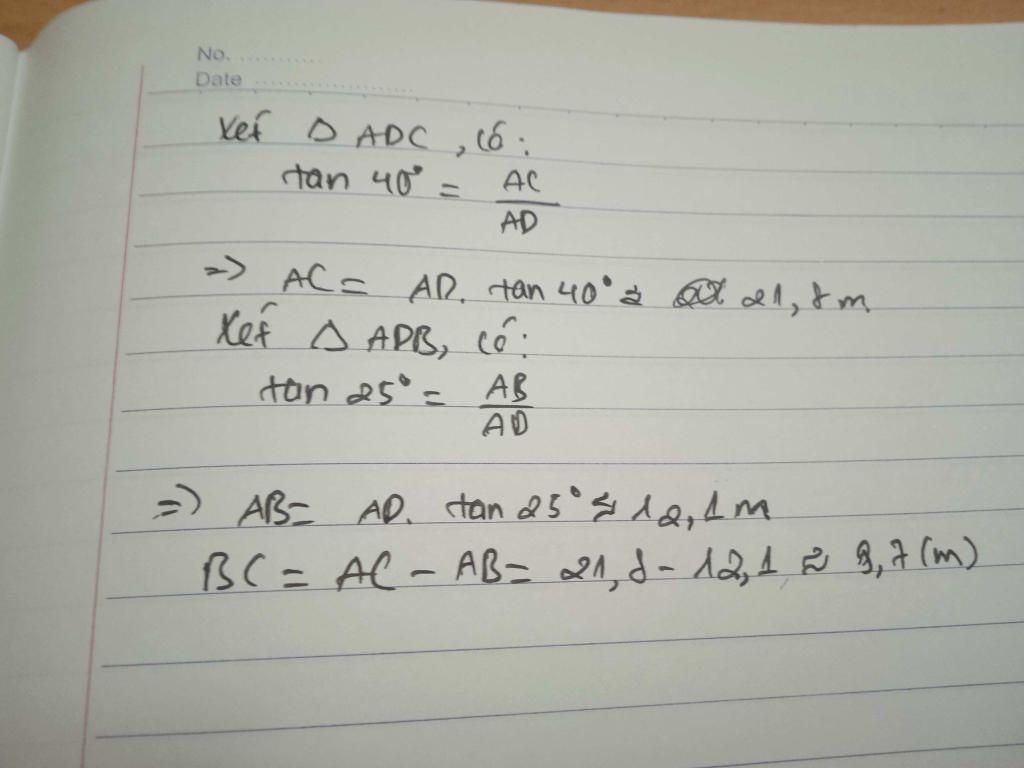 No. ............
Date ......................
Xét Δ ADC, có:
tan 40° = AC/AD
=> AC = AD. tan 40° ≈ 21,8 m
Xét Δ ADB, có:
tan 25° = AB/AD
=> AB = AD. tan 25° ≈ 12,1 m
BC = AC - AB = 21,8 - 12,1 ≈ 9,7 (m)